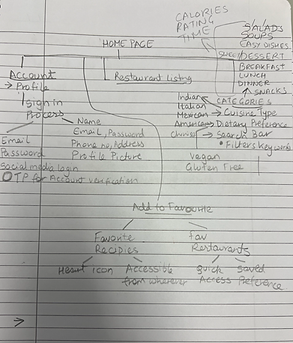 CALORIES
RATING
TIME
SALADS
SOUPS
EASY DISHES
DESSERT
BREAKFAST
LUNCH
DINNER
SNACKS
HOME PAGE
Account
→ Profile
Restaurant Listing
Sign in
Process
Indian
Italian
Mexican
American
CATEGORIES
→ Cuisine Type
→ Dietary Preference
→ Search Bar
• Filters keywords
Vegan
Gluten Free
→ Name
Email, Password
Phone no, Address
Profile Picture
Email
Password
Social media login
OTP for Account verification
Add to Favourite
Favorite
Recipies
Fav
Restaurants
Heart icon
Accessible
from wherever
quick
Access
saved
Preference